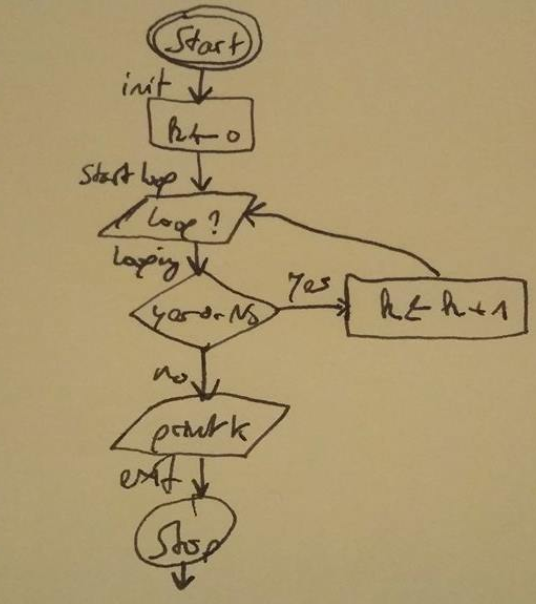 Start
init
k ← 0
Start loop
loop ?
looping
yes or No
Yes
k ← k + 1
no
print k
exit
Stop